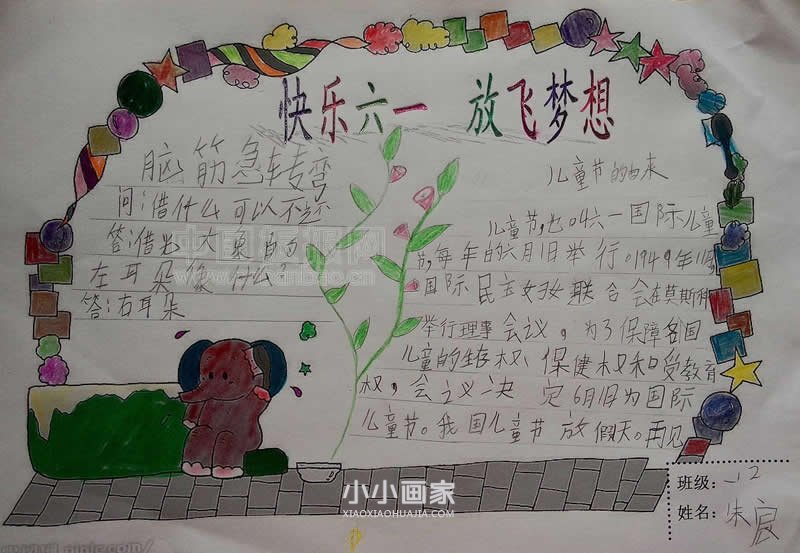 快乐六一 放飞梦想
脑筋急转弯
问:借什么可以不还
答:借出 大象的
左耳朵像什么?
答:右耳朵
儿童节的由来
儿童节,也叫六一国际儿童
节,每年的六月1日举行。1949年11月
国际民主妇女联合会在莫斯科
举行理事会议,为了保障各国
儿童的生存权、保健权和受教育
权,会议决定6月1日为国际
儿童节。我国儿童节放假天。再见
班级:
姓名:朱
小小画家
XIAOXIAOHUAJIA.COM